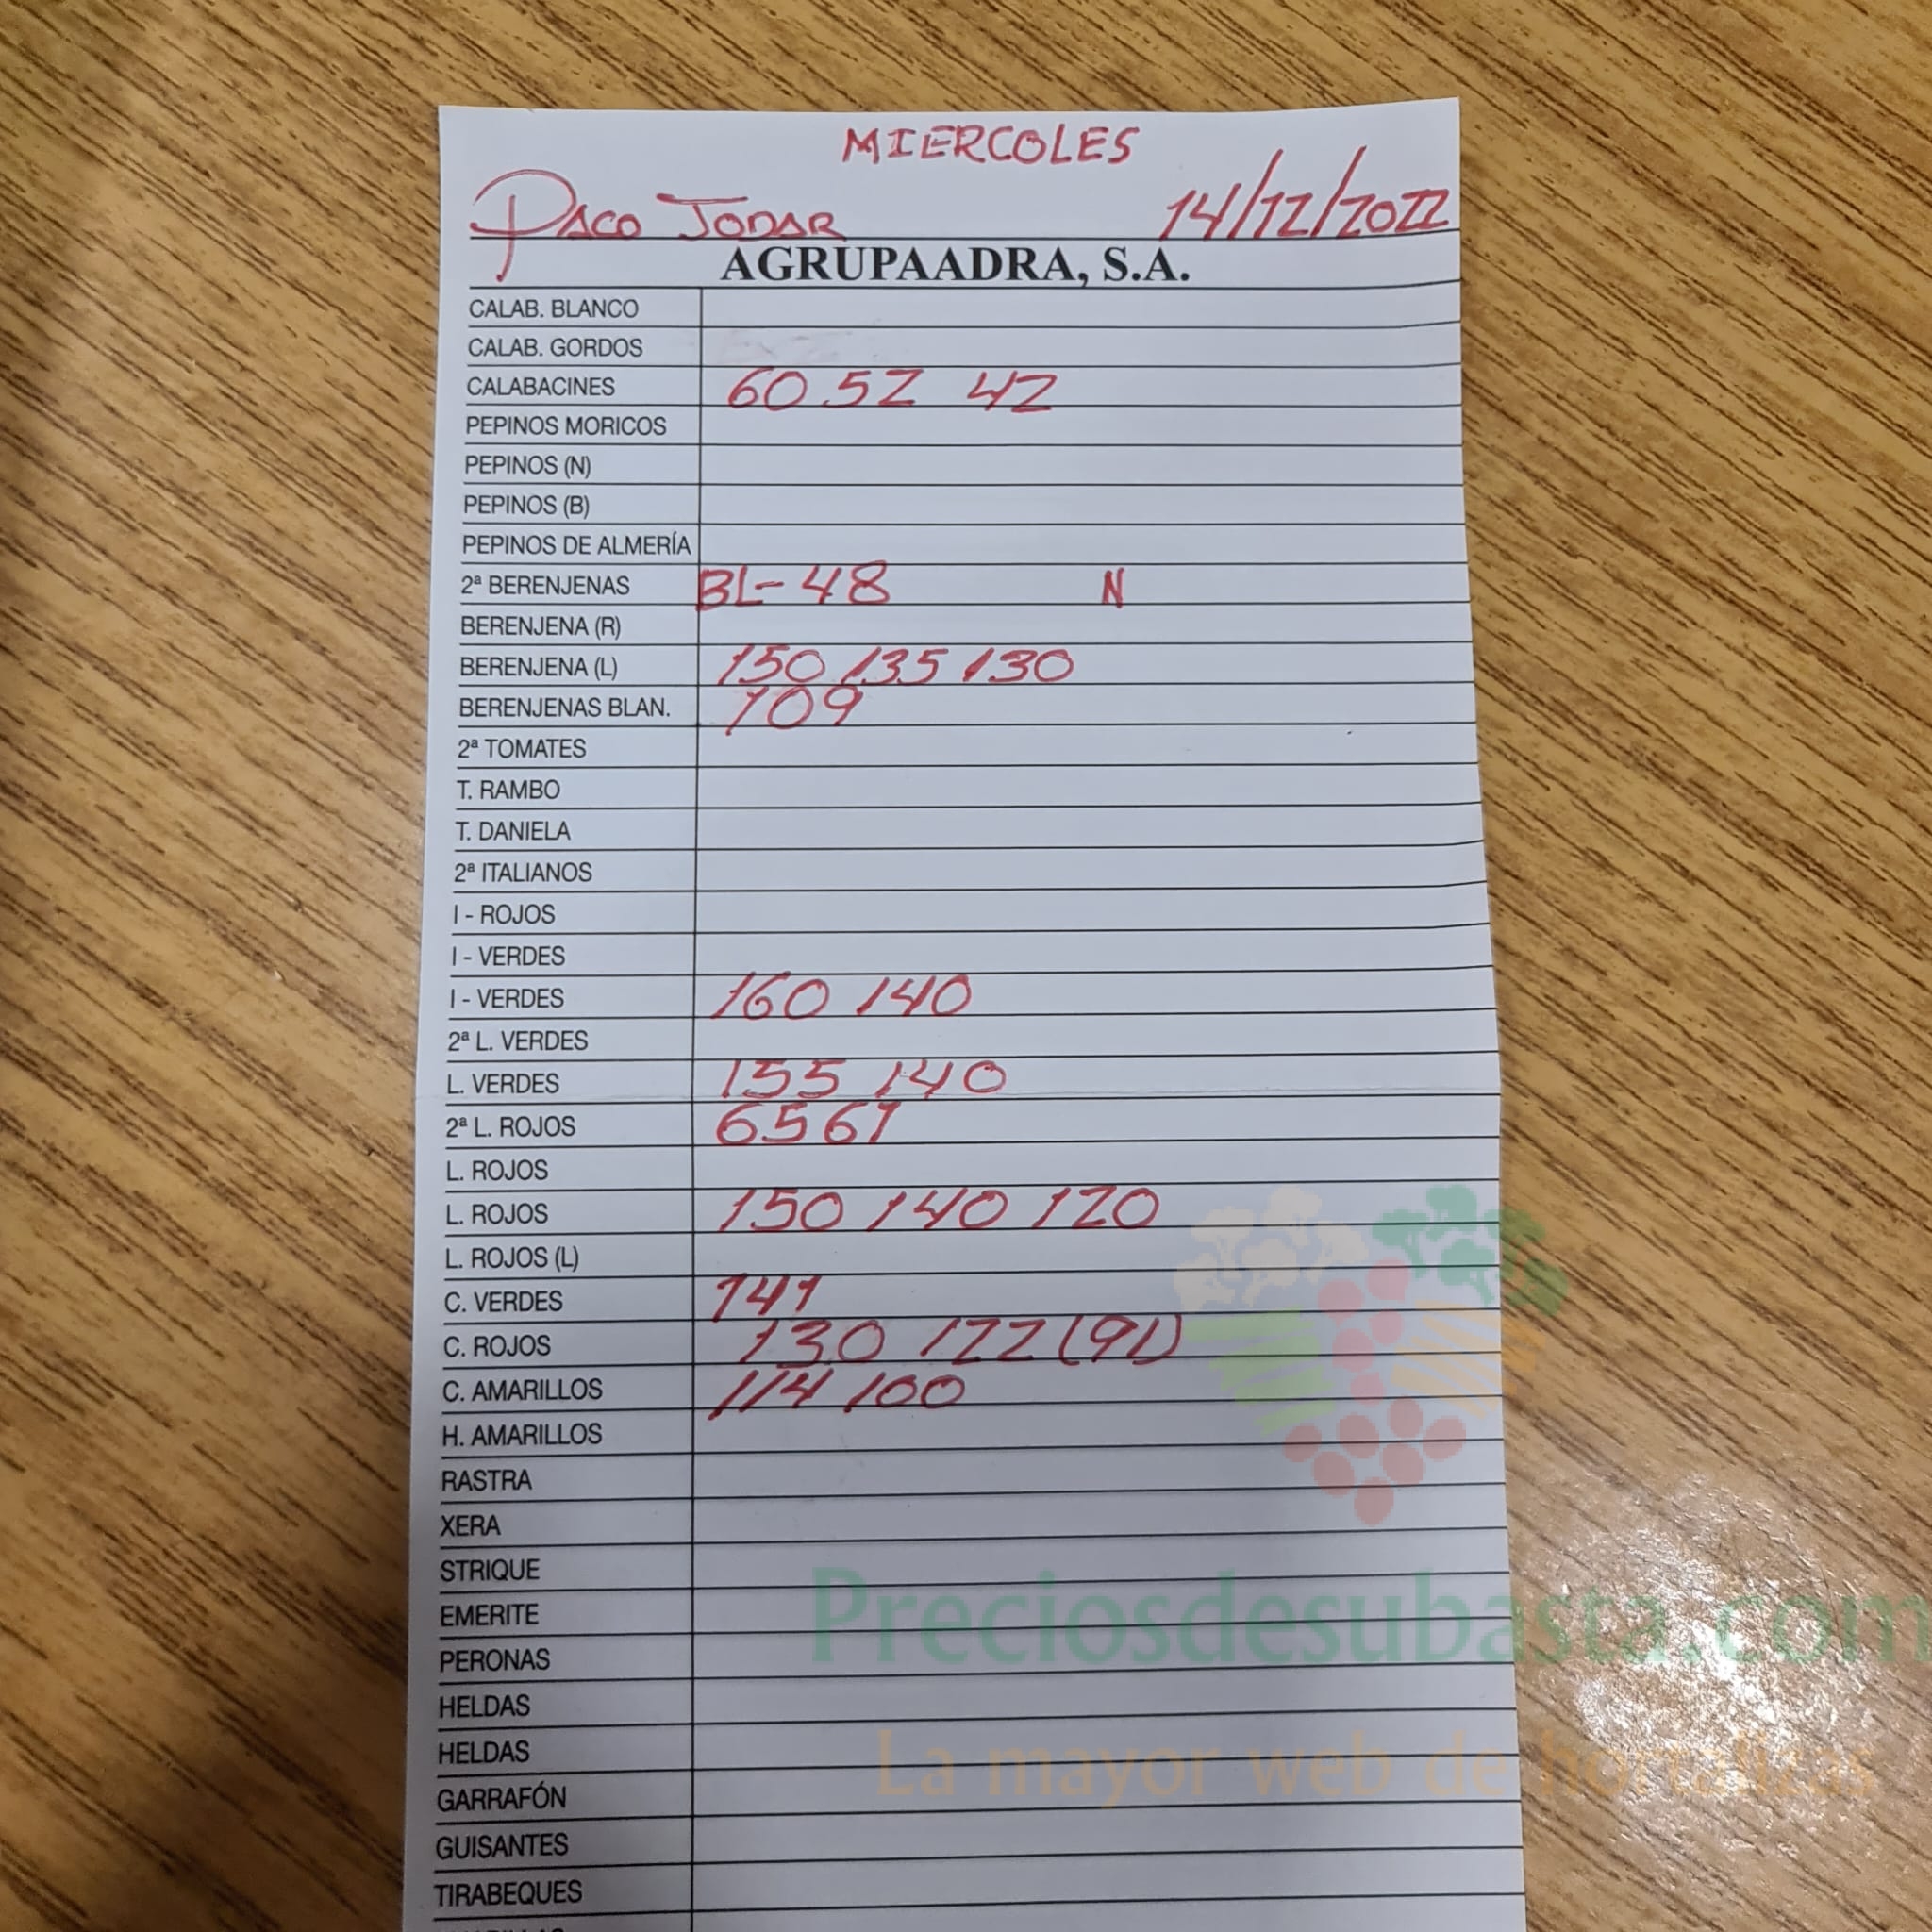 MIERCOLES
PACO JODAR 14/12/2022
AGRUPAADRA, S.A.
CALAB. BLANCO
CALAB. GORDOS
CALABACINES 60 52 42
PEPINOS MORICOS
PEPINOS (N)
PEPINOS (B)
PEPINOS DE ALMERÍA
2ª BERENJENAS BL- 48 N
BERENJENA (R)
BERENJENA (L) 150 135 130
BERENJENAS BLAN. 109
2ª TOMATES
T. RAMBO
T. DANIELA
2ª ITALIANOS
I - ROJOS
I - VERDES
I - VERDES 160 140
2ª L. VERDES
L. VERDES 155 140
2ª L. ROJOS 65 61
L. ROJOS
L. ROJOS 150 140 120
L. ROJOS (L)
C. VERDES 141
C. ROJOS 130 122 (91)
C. AMARILLOS 114 100
H. AMARILLOS
RASTRA
XERA
STRIQUE
EMERITE
Preciosdesubasta.com
PERONAS
HELDAS
HELDAS
La mayor web de hortalizas
GARRAFÓN
GUISANTES
TIRABEQUES